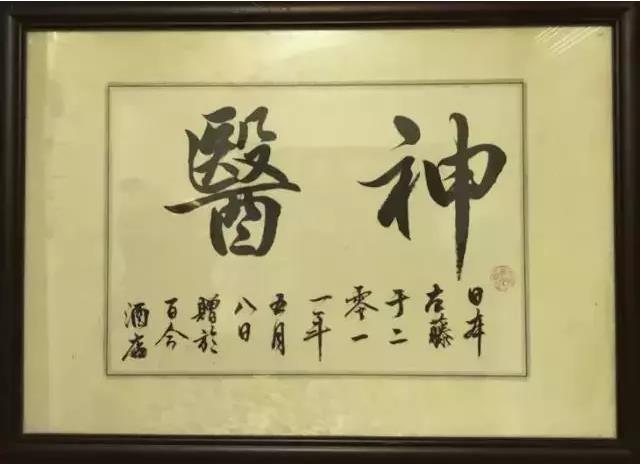 神醫
日本
左藤
于二
零一
一年
五月
八日
贈於
百合
酒店